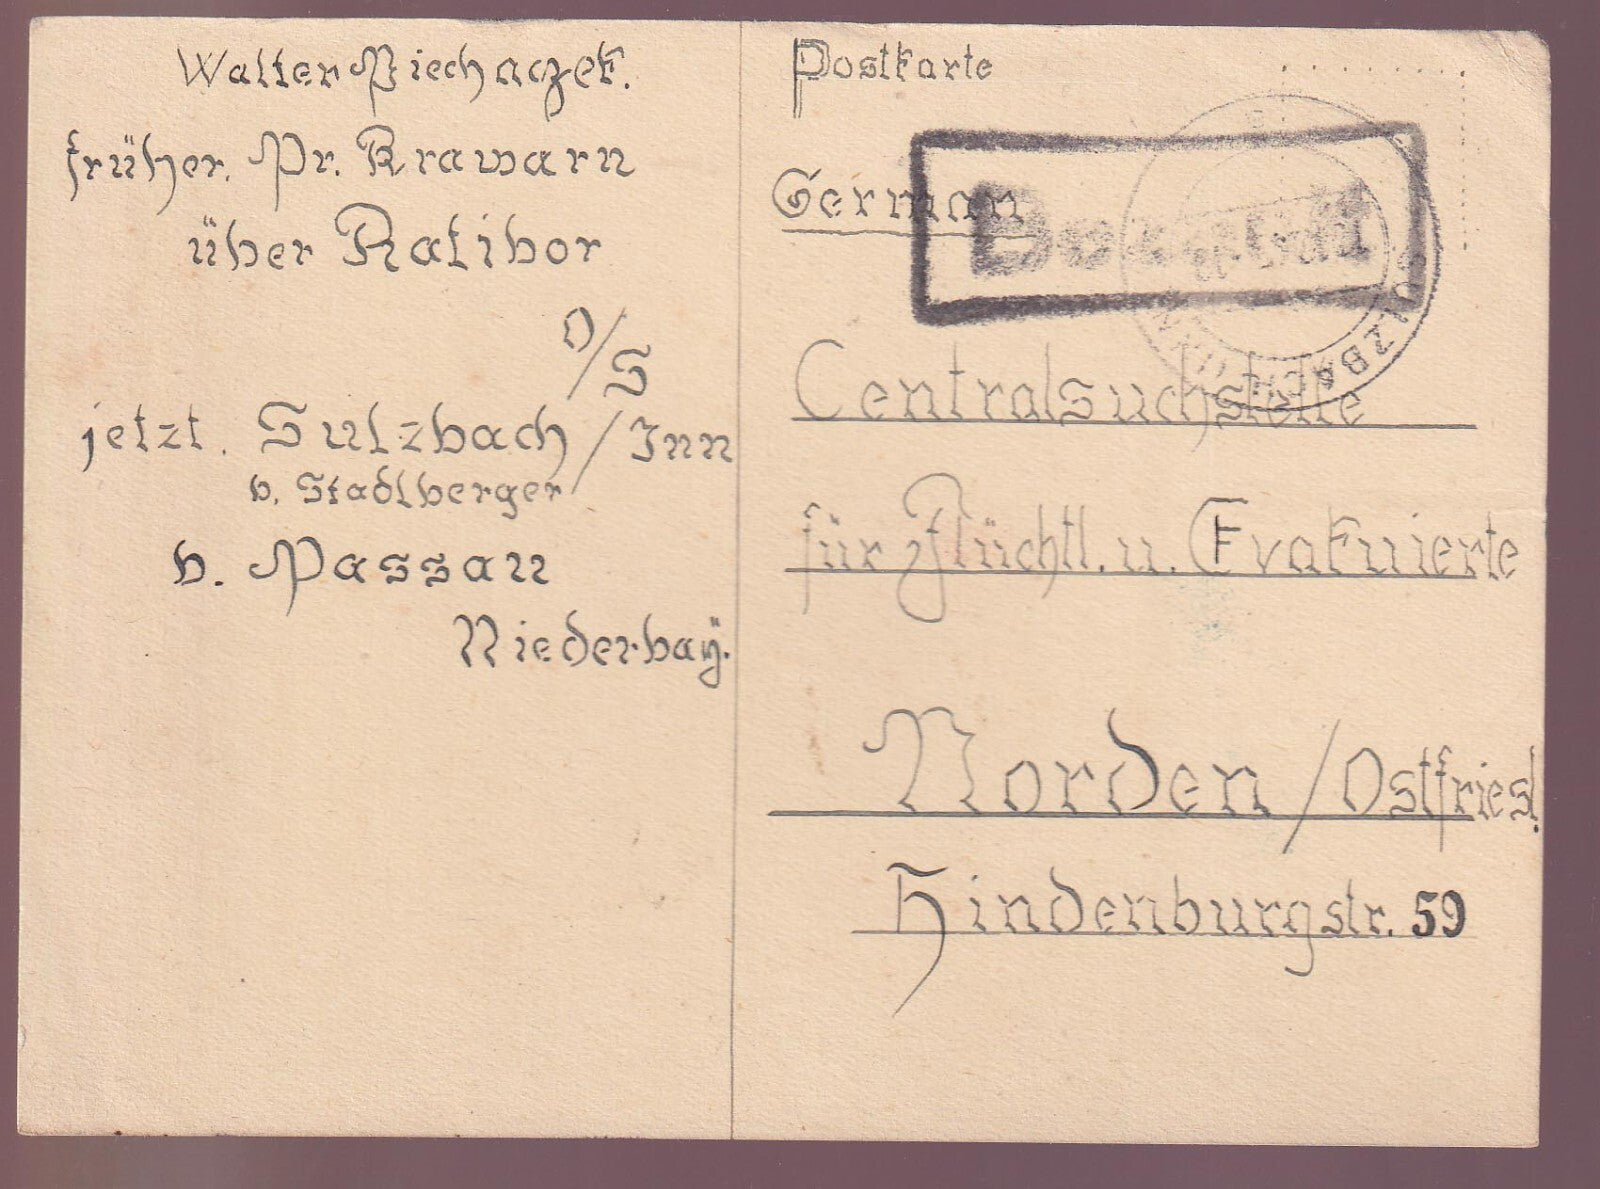 Walter Piechaczek.
früher. Pr. Krawarn
über Ratibor
O/S
jetzt. Sulzbach/Inn
b. Stadlberger
b. Passau
Niederbaÿ.
Postkarte
German
Bezahlt
Centralsuchstelle
für Flüchtl. u. Evakuierte
Norden/Ostfriesl.
Hindenburgstr. 59